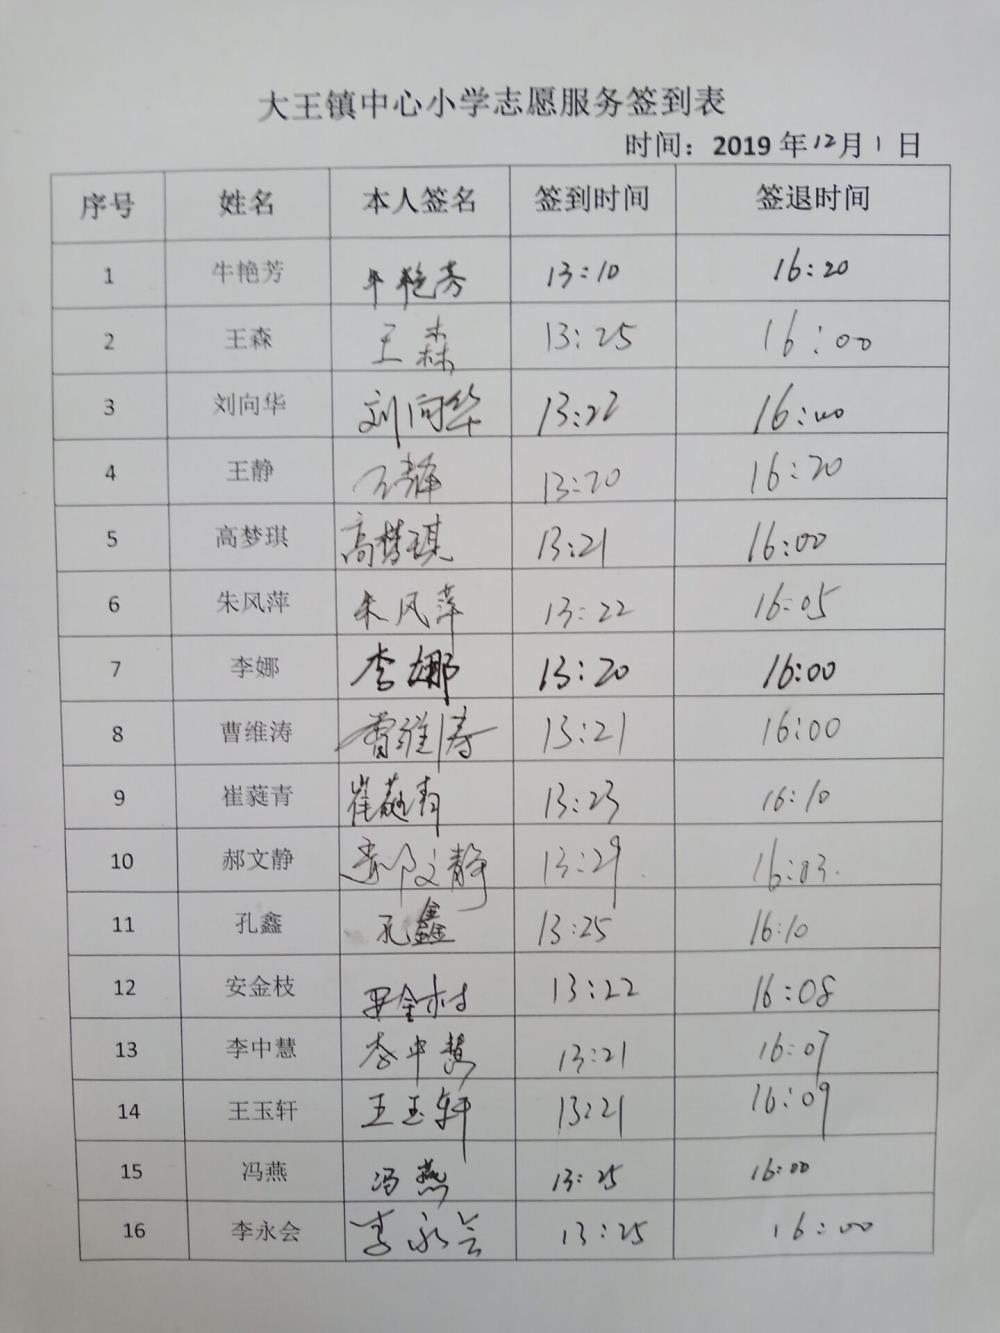 大王镇中心小学志愿服务签到表
时间：2019 年 12 月 1 日
序号 姓名 本人签名 签到时间 签退时间
1 牛艳芳 牛艳芳 13:10 16:20
2 王森 王森 13:25 16:00
3 刘向华 刘向华 13:22 16:00
4 王静 王静 13:20 16:20
5 高梦琪 高梦琪 13:21 16:00
6 朱风萍 朱风萍 13:22 16:05
7 李娜 李娜 13:20 16:00
8 曹维涛 曹维涛 13:21 16:00
9 崔蕤青 崔蕤青 13:23 16:10
10 郝文静 郝文静 13:29. 16:03.
11 孔鑫 孔鑫 13:25 16:10
12 安金枝 安金枝 13:22 16:08
13 李中慧 李中慧 13:21 16:07
14 王玉轩 王玉轩 13:21 16:09
15 冯燕 冯燕 13:25 16:00
16 李永会 李永会 13:25 16:00